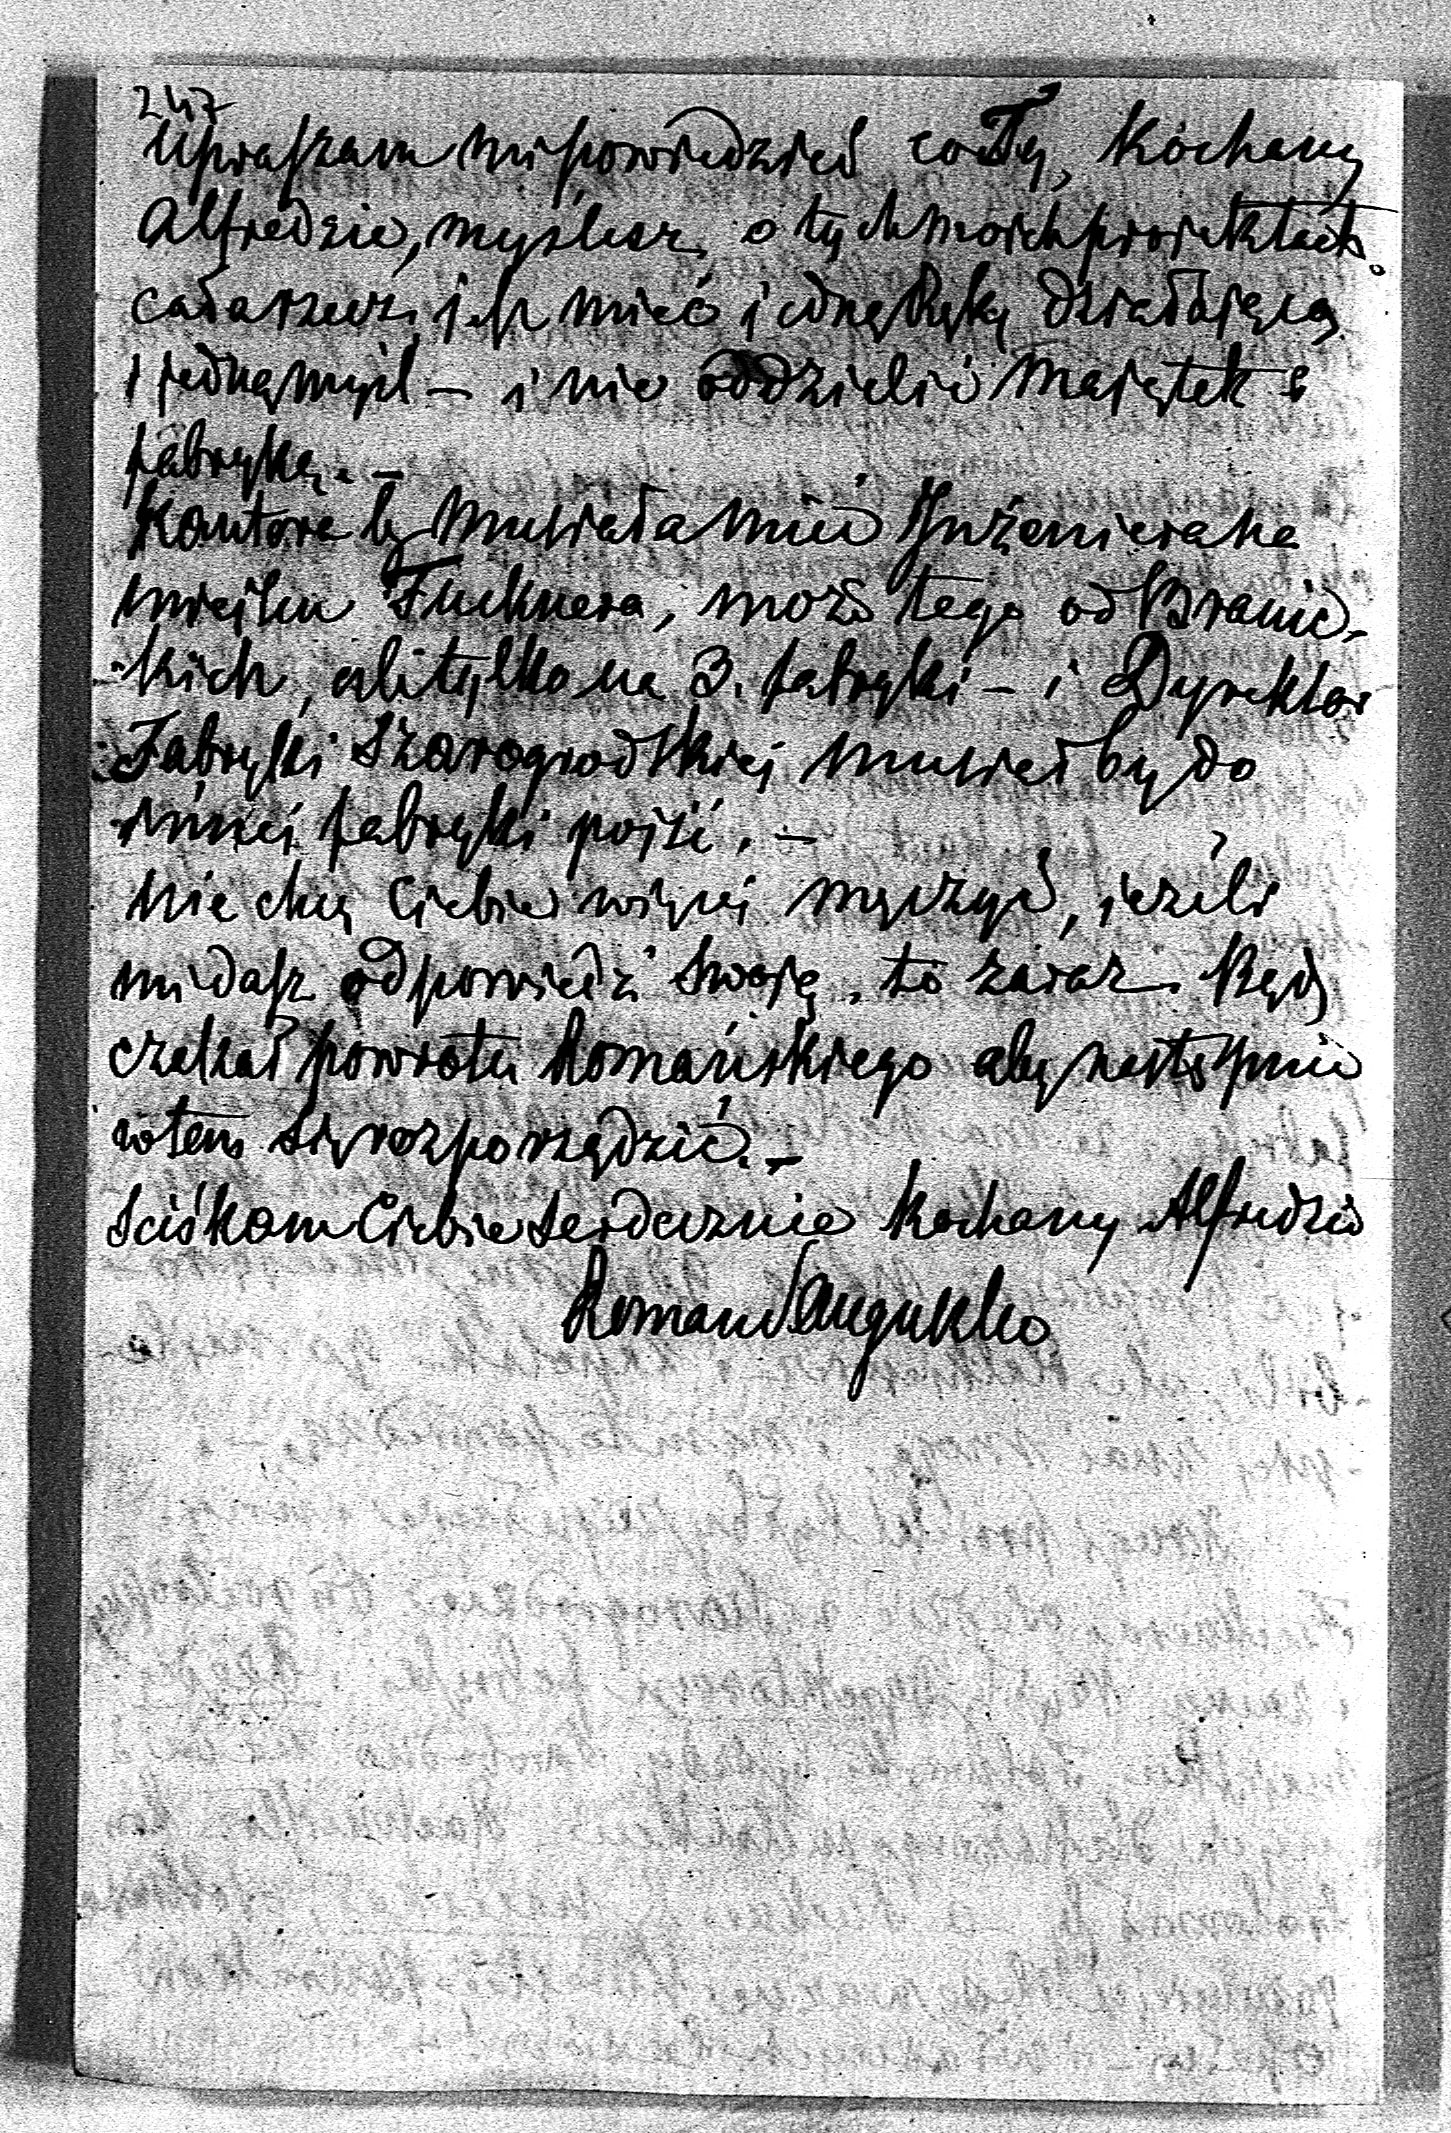 247
Upraszam mi powiedzieć co Ty, Kochany
Alfredzie, myślisz o tych moich projektach.
cała rzecz jest mieć jedną rękę działającą
i jedną myśl – i nie oddzielić majątek s
fabryką. –
Kontora by musiała mieć Inżeniera na
miejscu Fucknera, może tego od Branic-
kich, ale tylko na 3. fabryki – i Dyrektor
Fabryki Szarogrodskiej musiał by do
innej fabryki pojść. –
nie chcę Ciebie więcej męczyć, jeżeli
mi dasz odpowiedź swoję, to zaraz. Będę
czekał powrotu Romańskiego aby następnie
w tem się rozporządzić. –
Sciskam Ciebie serdecznie Kochany Alfredzie
Roman Sanguszko